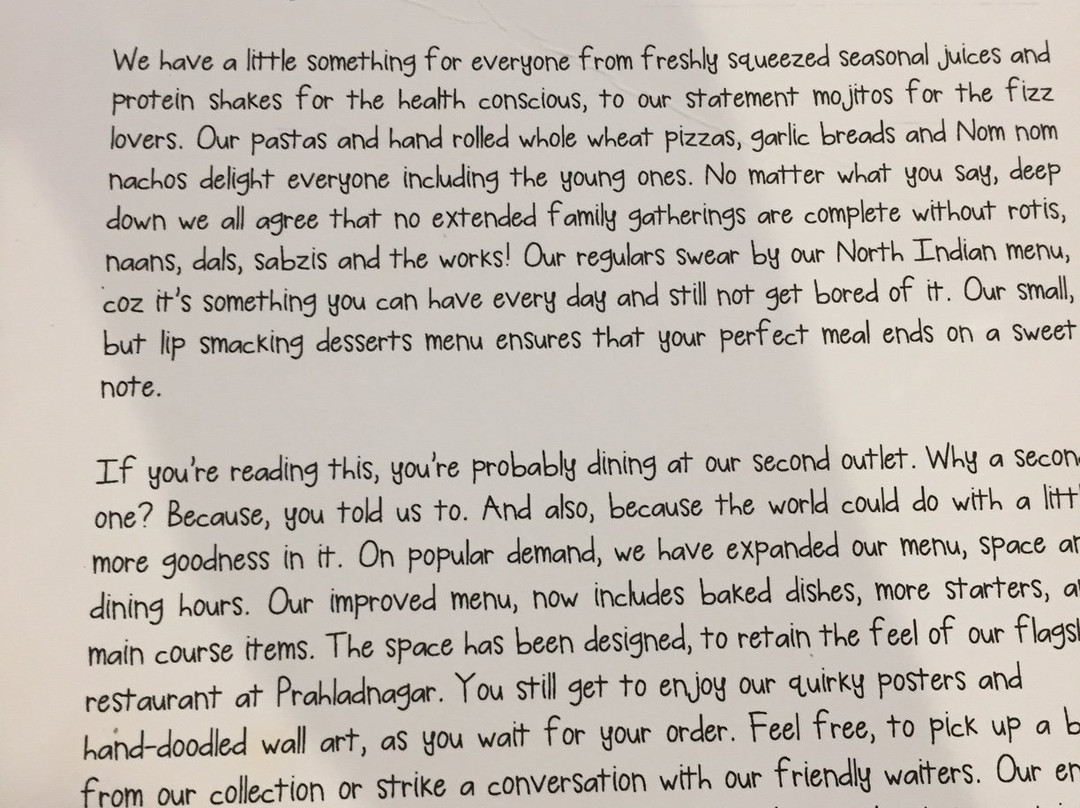 We have a little something for everyone from freshly squeezed seasonal juices and
protein shakes for the health conscious, to our statement mojitos for the fizz
lovers. Our pastas and hand rolled whole wheat pizzas, garlic breads and Nom nom
nachos delight everyone including the young ones. No matter what you say, deep
down we all agree that no extended family gatherings are complete without rotis,
naans, dals, sabzis and the works! Our regulars swear by our North Indian menu,
coz it's something you can have every day and still not get bored of it. Our small,
but lip smacking desserts menu ensures that your perfect meal ends on a sweet
note.
If you're reading this, you're probably dining at our second outlet. Why a
one? Because, you told us to. And also, because the world could do with a
more goodness in it. On popular demand, we have expanded our menu, space
dining hours. Our improved menu, now includes baked dishes, more starters,
main course items. The space has been designed, to retain the feel of our
restaurant at Prahladnagar. You still get to enjoy our quirky posters and
hand-doodled wall art, as you wait for your order. Feel free, to pick up a
from our collection or strike a conversation with our friendly waiters. Our